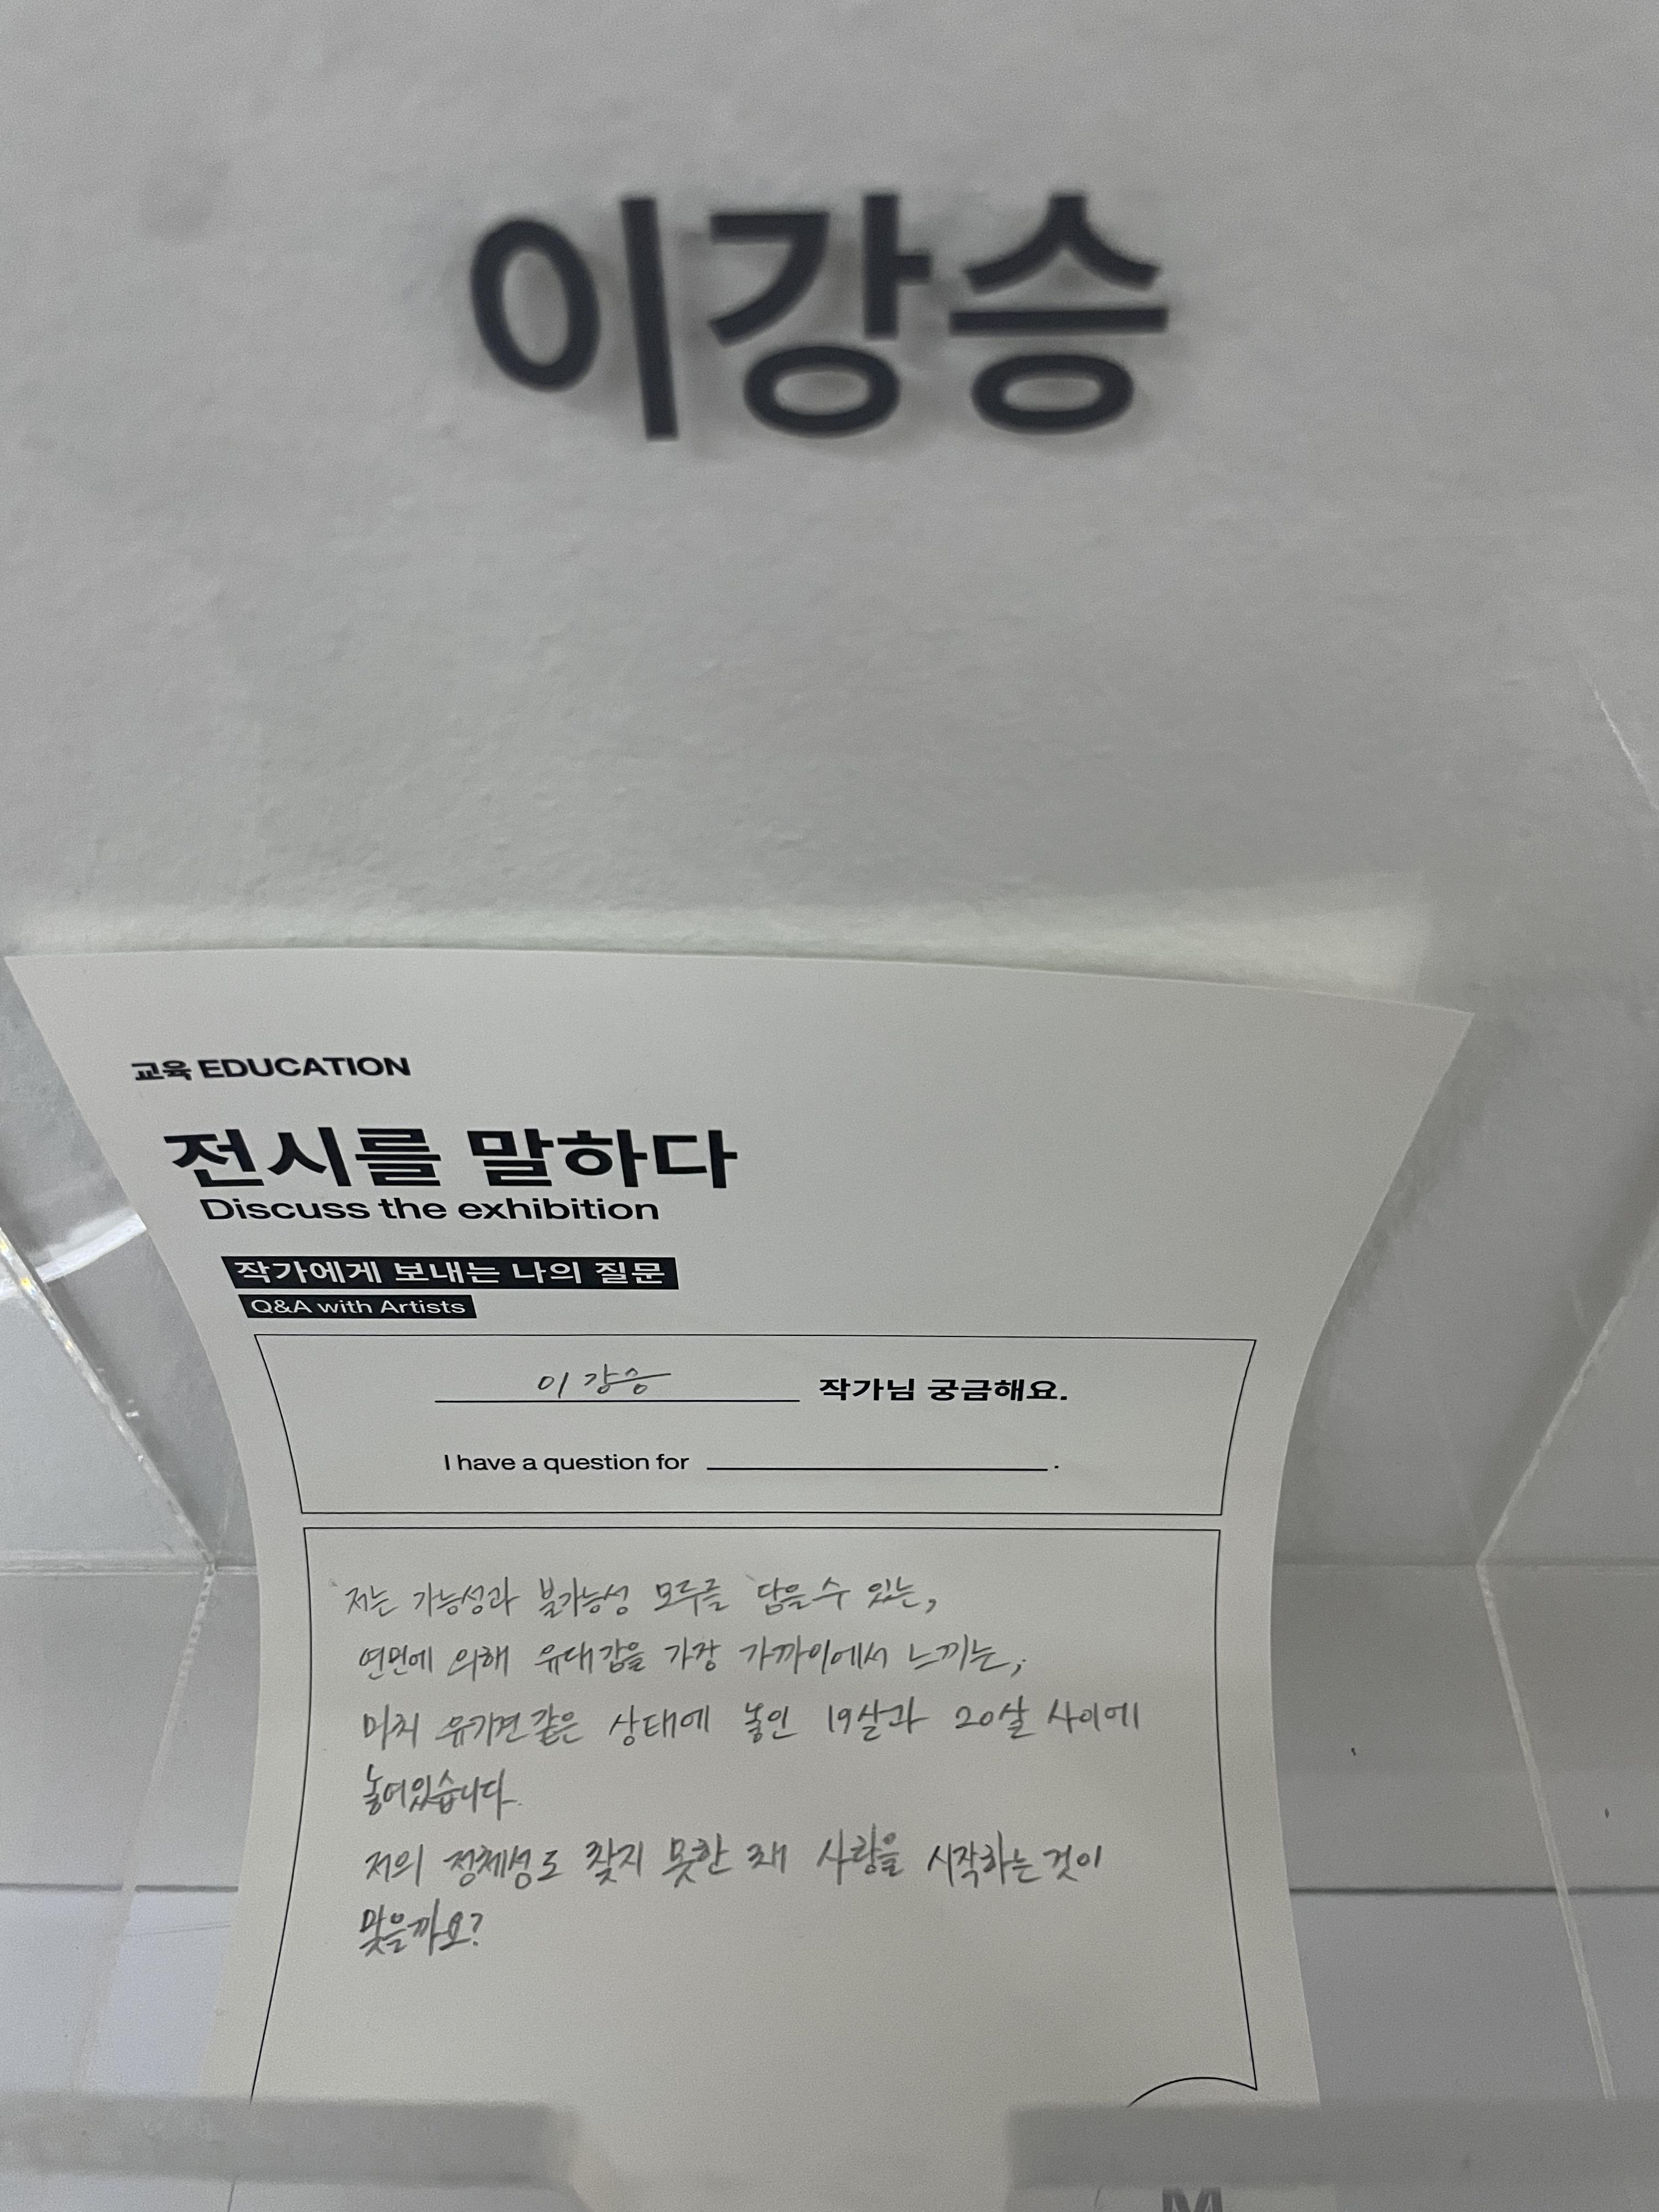 이강승
교육 EDUCATION
전시를 말하다
Discuss the exhibition
작가에게 보내는 나의 질문
Q&A with Artists
이강승 작가님 궁금해요.
I have a question for .
저는 가능성과 불가능성 모두를 담을 수 있는,
연민에 의해 유대감을 가장 가까이에서 느끼는,
마치 유기견같은 상태에 놓인 19살과 20살 사이에
놓여있습니다.
저의 정체성도 찾지 못한 채 사랑을 시작하는 것이
맞을까요?
M